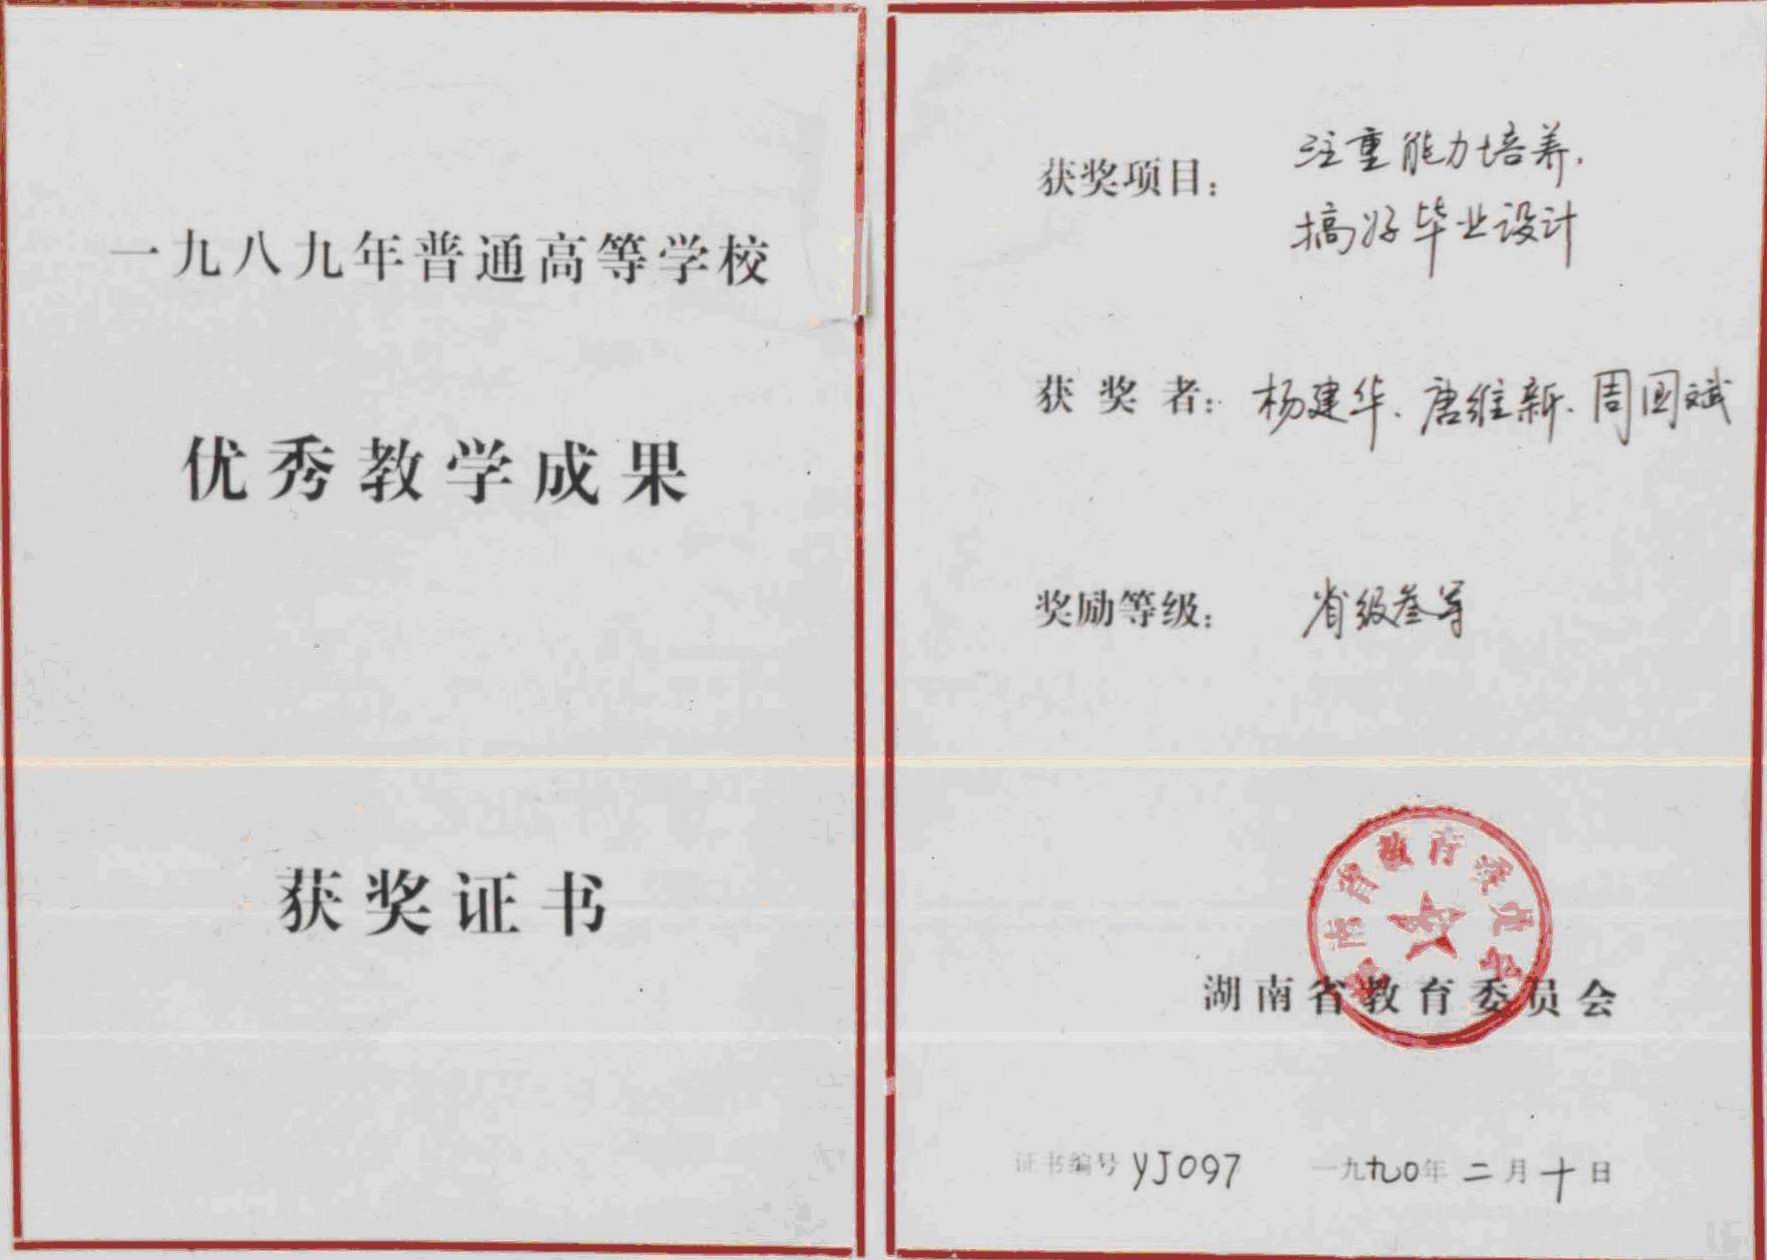 一九八九年普通高等学校
优秀教学成果
获奖证书
获奖项目：注重能力培养，
搞好毕业设计
获奖者：杨建华、唐维新、周国斌
奖励等级：省级叁等
湖南省教育委员会
湖南省教育委员会
证书编号 YJ097 一九九0年二月十日